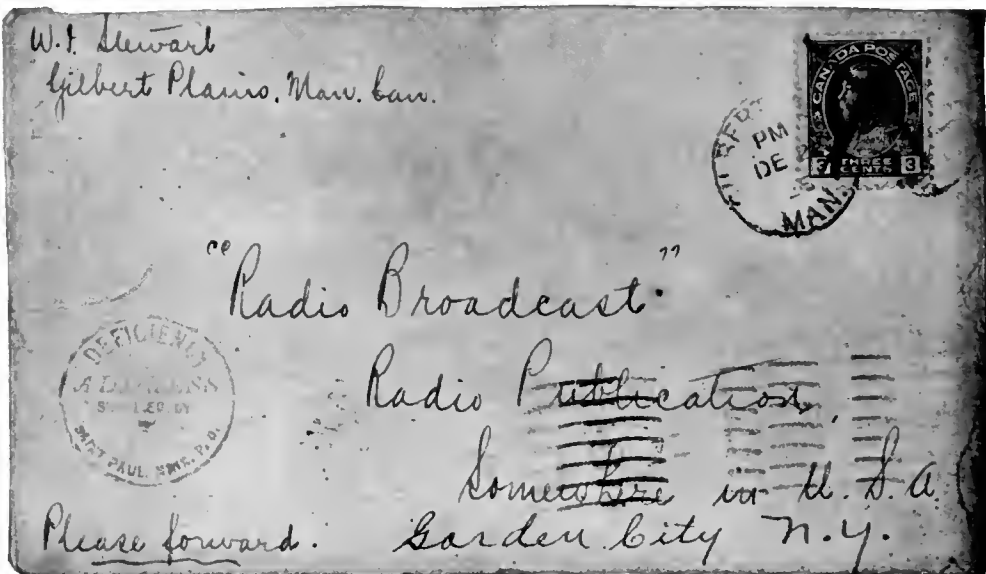 W. F. Stewart
Gilbert Plains, Man. Can.
CANADA POSTAGE
3 THREE CENTS 3
PM
DE
MAN.
"Radio Broadcast."
Radio Publication,
Somewhere in U.S.A.
Garden City N.Y.
Please forward.
DEFICIENCY
ADDRESS
SUPPLIED BY
SAINT PAUL, MINN. P.O.